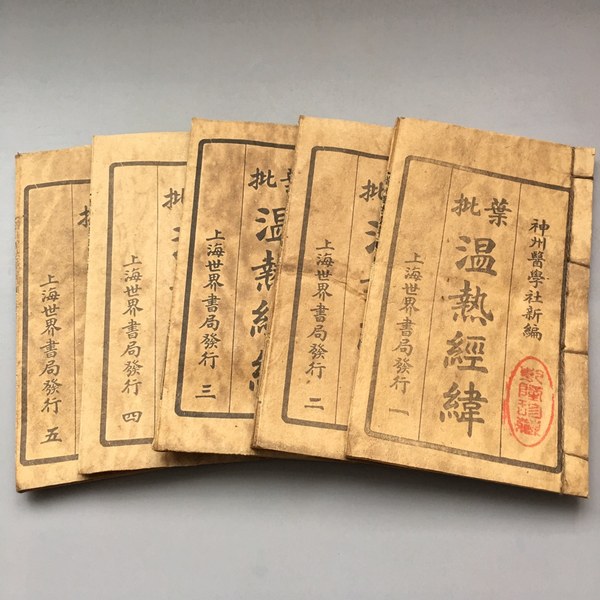 神州醫學社新編
葉批
温熱經緯
上海世界書局發行 一
批
上海世界書局發行 二
葉批
温熱經緯
上海世界書局發行 三
批
上海世界書局發行 四
批
上海世界書局發行 五